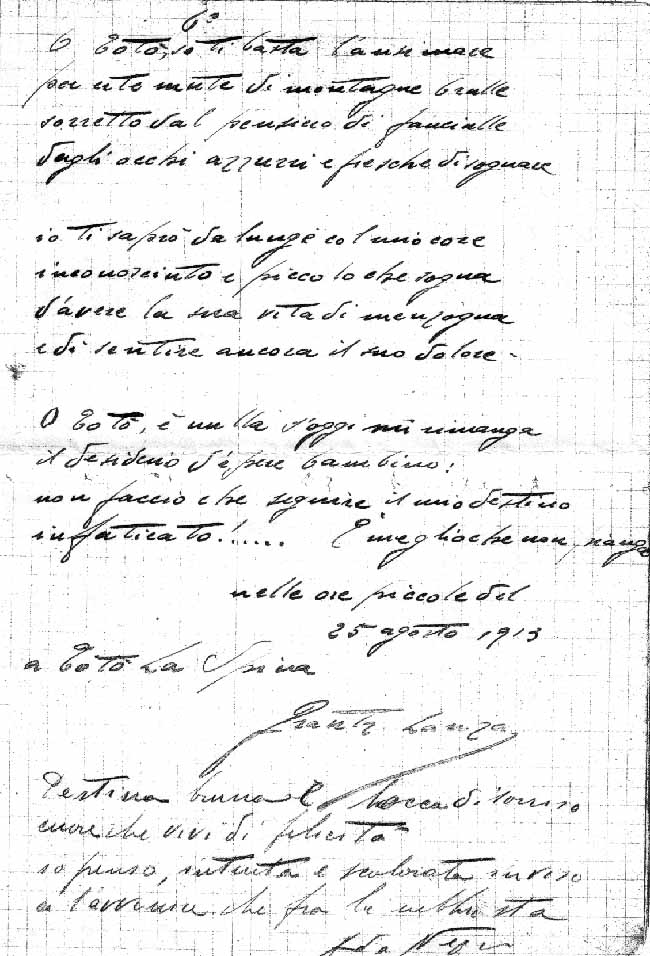 6°
O Totò, se ti basta l'ansimare
per erte mute di montagne brulle
sorretto dal pensiero di fanciulle
dagli occhi azzurri e fresche di sognare
io ti saprò da lunge col mio core
inconosciuto e piccolo che sogna
d'avere la sua vita di menzogna
e di sentire ancora il suo dolore.
O Totò, è nulla s'oggi mi rimanga
il desiderio d'eper bambino:
non faccio che seguire il mio destino
infaticato!..... È meglio che non pianga
nelle ore piccole del
25 agosto 1913
a Totò La Spina
Lanza
Testina bruna e bocca di sorriso
cuore che vivi di felicità
io penso, intenta e scolorata in viso
a l'avvenire che fra le nebbie sta
Ada Negri